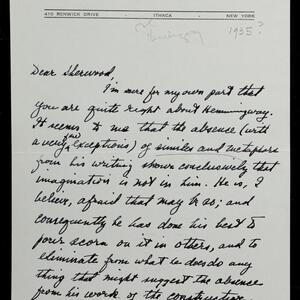 410 RENWICK DRIVE · ITHACA · NEW YORK
Hemingway 1935?
Dear Sherwood,
I'm more for my own part that
you are quite right about Hemingway.
It seems to me that the absence (with
a very few exceptions) of similes and metaphors
from his writing shows conclusively that
imagination is not in him. He is, I
believe, afraid that may be so; and
consequently he has done his best to
pour scorn on it in others, and to
eliminate from what he does do any
thing that might suggest the absence
from his work of the constructive